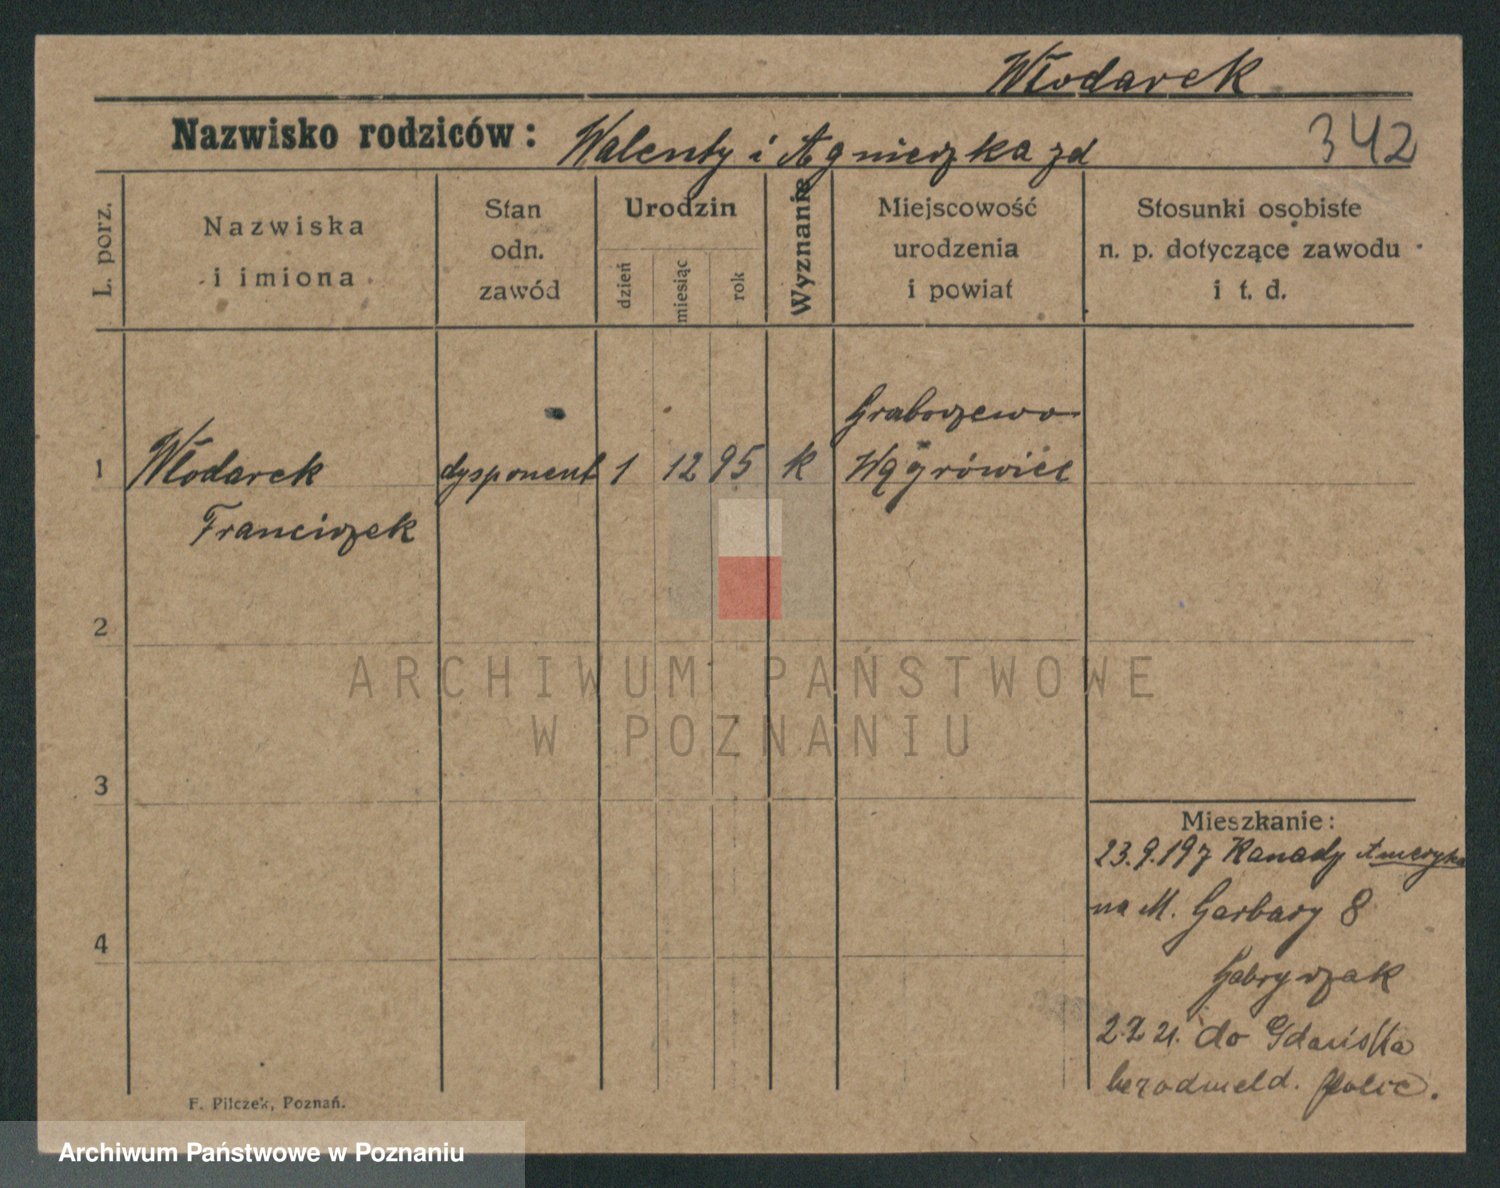 Włodarek
Nazwisko rodziców: Walenty i Agnieszka zd
342
L. porz.
Nazwiska
i imiona
Stan
odn.
zawód
Urodzin
dzień
miesiąc
rok
Wyznanie
Miejscowość
urodzenia
i powiat
Stosunki osobiste
n. p. dotyczące zawodu
i t. d.
Graboszewo
1 Włodarek dysponent 1 12 95 k Wągrówiec
Franciszek
2
3
4
Mieszkanie:
23.9.19 z Kanady Ameryka
na M. Garbary 8
Gabryszak
2.2 21. do Gdańska
bez odmeld. Polic.
F. Pilczek, Poznań.
ARCHIWUM PAŃSTWOWE
W POZNANIU
Archiwum Państwowe w Poznaniu